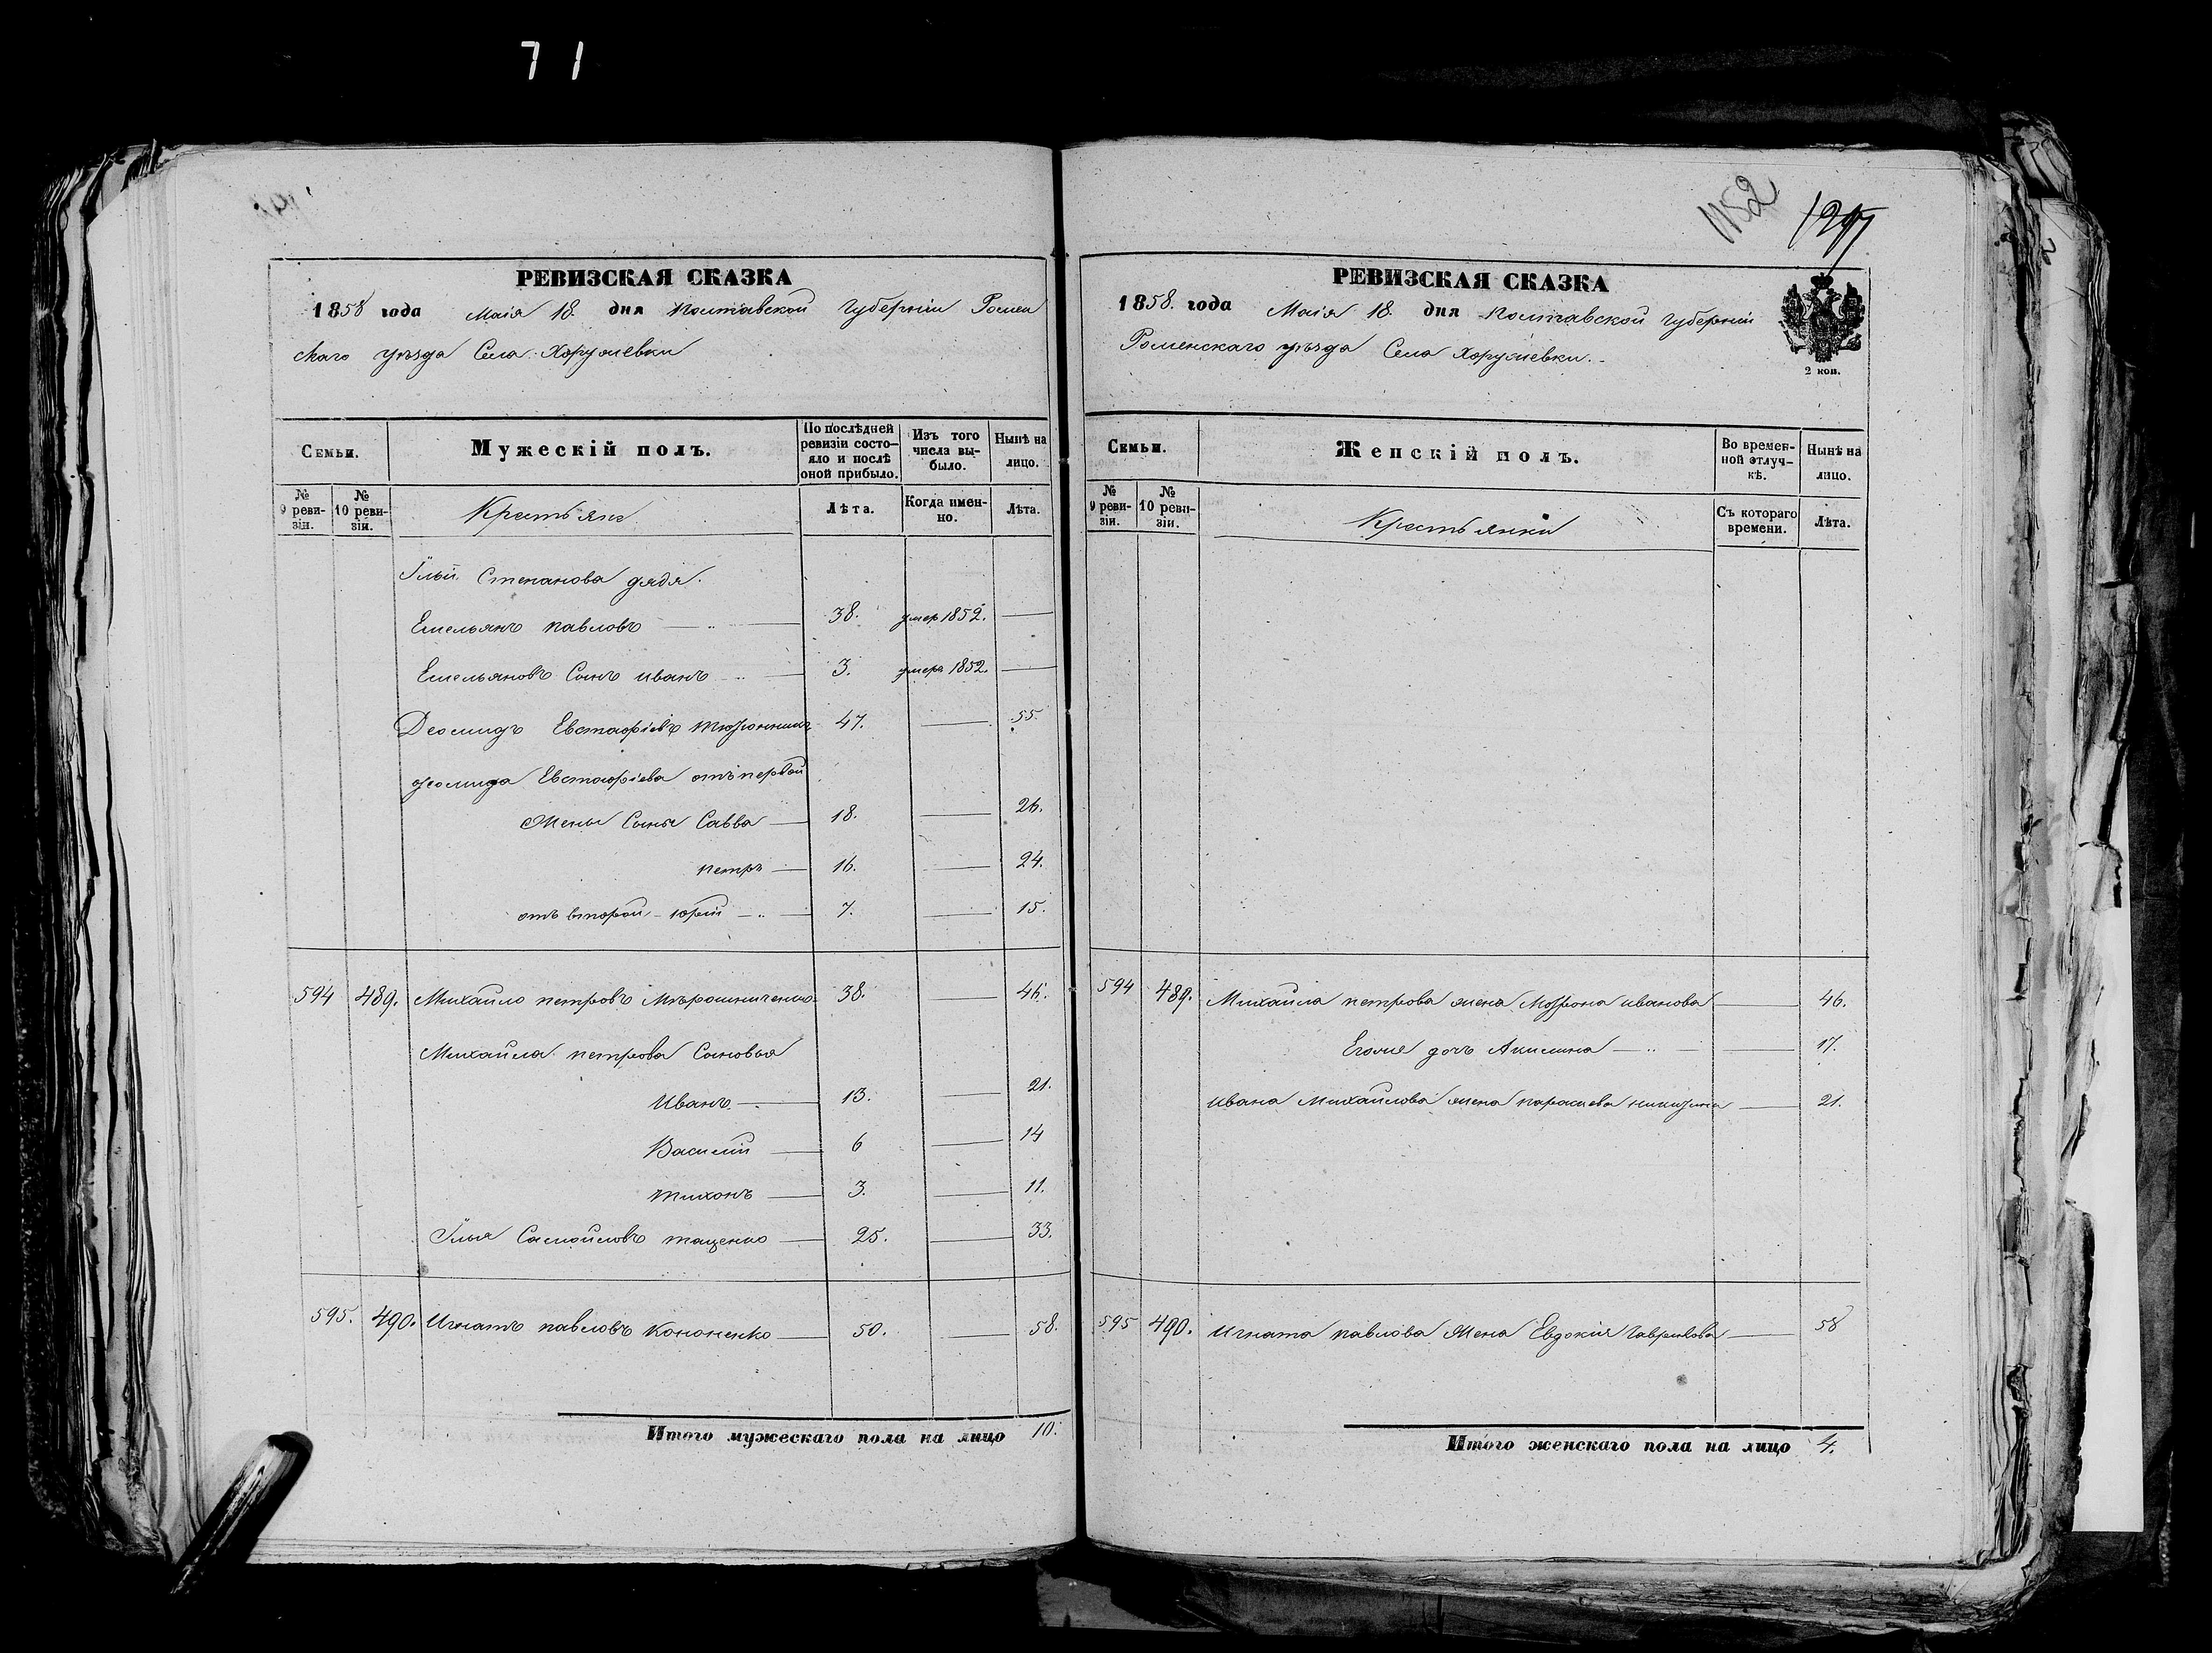 71
1152
РЕВИЗСКАЯ СКАЗКА
1858 года Маія 18. дня Полтавской Губерніи Ромен
скаго уѣзда Села Хоружевки
Семьи.
Мужескій полъ.
По послѣдней ревизіи состояло и послѣ оной прибыло.
Изъ того числа выбыло.
Нынѣ на лицо.
№ 9 ревизіи.
№ 10 ревизіи.
Крестьяне
Лѣта.
Когда именно.
Лѣта.
Ільи Степанова дядя.
Емельянъ павловъ 38. умер 1852.
Емельяновъ Сынъ иванъ 3. умеръ 1852.
Деомидъ Евстафіевъ 47. 55.
деомида Евстафіева отъ первой
Жены Сыны Савва 18. 26.
петръ 16. 24.
отъ второй - юрій 7. 15.
594 489. Михайло петровъ Мѣрошниченко 38. 46.
Михайла петрова Сыновья
Иванъ 13. 21.
Василій 6 14
тихонъ 3. 11.
Ілья Самойловъ тащенко 25. 33.
595. 490. Игнатъ павловъ Кононенко 50. 58.
Итого мужескаго пола на лицо 10.
РЕВИЗСКАЯ СКАЗКА
1858. года Маія 18. дня Полтавской Губерніи
Роменскаго уѣзда Села Хоружевки.
2 коп.
Семьи.
Женскій полъ.
Во временной отлучкѣ.
Нынѣ на лицо.
№ 9 ревизіи.
№ 10 ревизіи.
Крестьянки
Съ котораго времени.
Лѣта.
594 489. Михайла петрова жена иванова 46.
Егоже дочь Акилина 17.
ивана Михайлова жена параскева 21.
595 490. игната павлова Жена Евдокія Гаврилова 58
Итого женскаго пола на лицо 4.